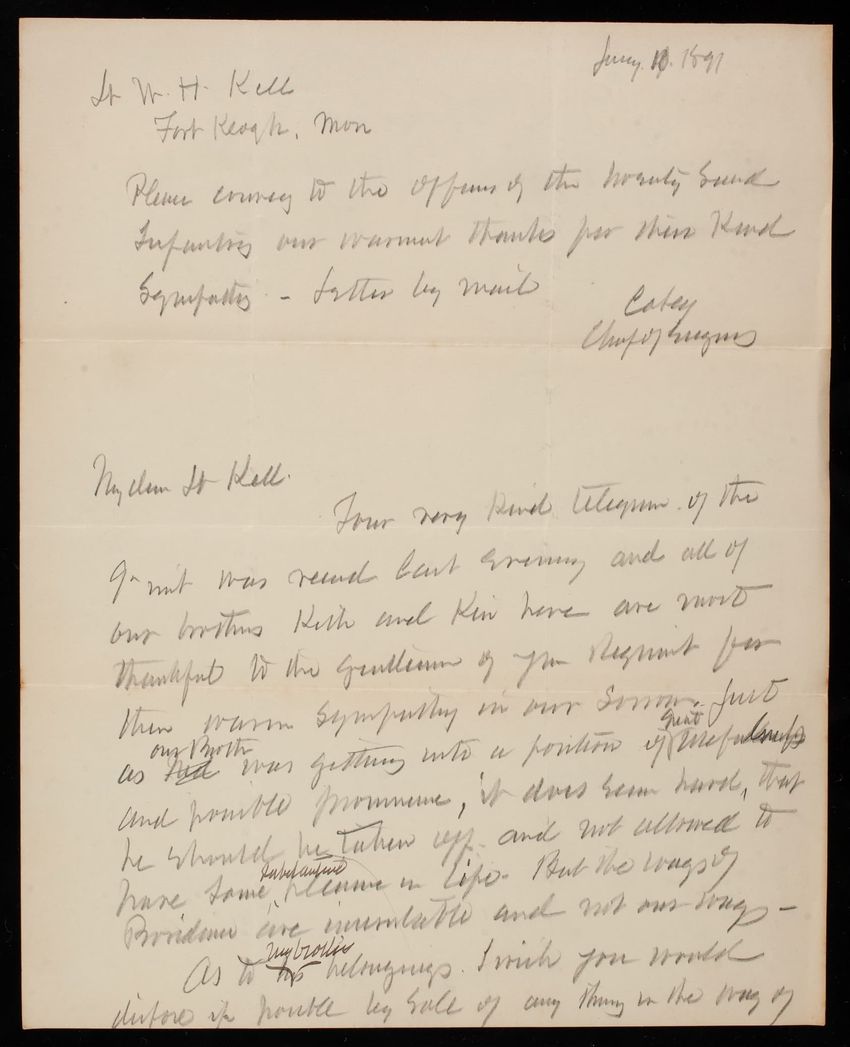 Jany. 10. 1891
Lt W. H. Kell
Fort Keogh, Mon
Please convey to the Officers of the Twenty Second
Infantry our warmest thanks for their Kind
Sympathy - Letter by mail
Casey
Chief of Engnrs
My dear Lt Kell.
Your very kind telegram of the
9th inst was recvd last evening and all of
our brothers Kith and Kin here are most
thankful to the gentlemen of your Regiment for
their warm sympathy in our sorrow. Just
our Brother great
as Ned was getting into a position of usefulness
and possible prominence, it does seem hard, that
he should be taken off and not allowed to
substantial
have some pleasure in life. But the ways of
Providence are inscrutable and not our ways -
my brothers
As to his belongings. I wish you would
dispose if possible by sale of any thing in the way of